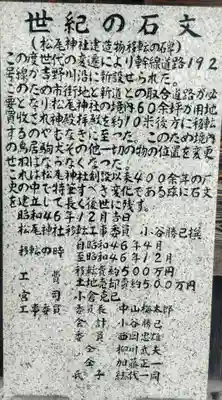 世紀の石文
(松尾神社建造物移転の碑)
この度世代の変遷により幹線道路192
号線が吉野川沿に新設せられた。
このため市街地と新道との取合道路が必
要となり松尾神社の境内60余坪が用地
買収され神殿拝殿を約10米後方に移転
するのやむなきに至った。このため境内
の鳥居駒犬その他一切の物の位置を変更
せねばならなくなった。
これは松尾神社創設以来400余年の歴
史の中で特筆すべき変化である故に石文
を建立して長く後世に残す。
昭和46年12月吉日
松尾神社移転工事委員 小谷勝己撰
移転の時 自昭和46年4月
至昭和46年12月
工費 移転費約500万円
土地売却費約500万円
宮司 小倉克己
工事委員 委員長 中山梅太郎
会計 小谷勝己
委員 西田忠
仝 柳川武夫
仝 加藤正一
氏子総代一同